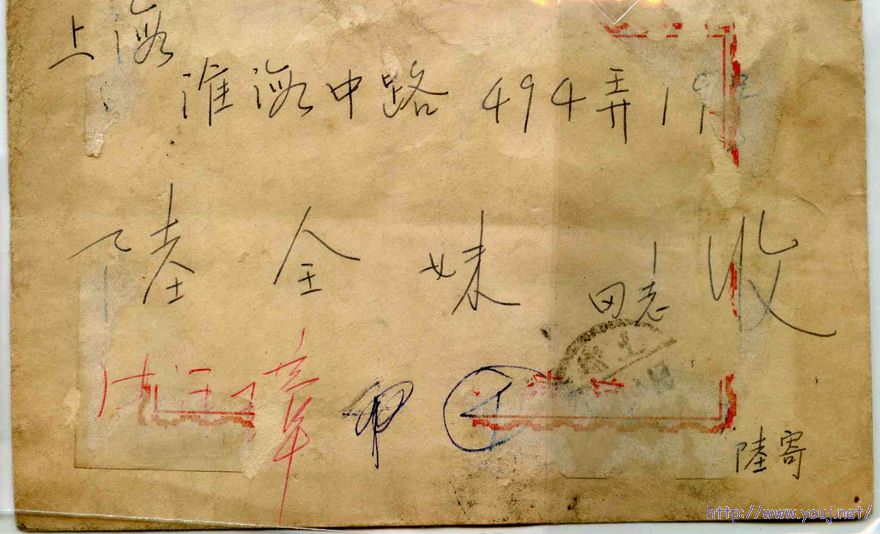 上海
淮海中路 494弄19号
陆全妹 同志 收
甲
陆寄
http://www.youj.net/